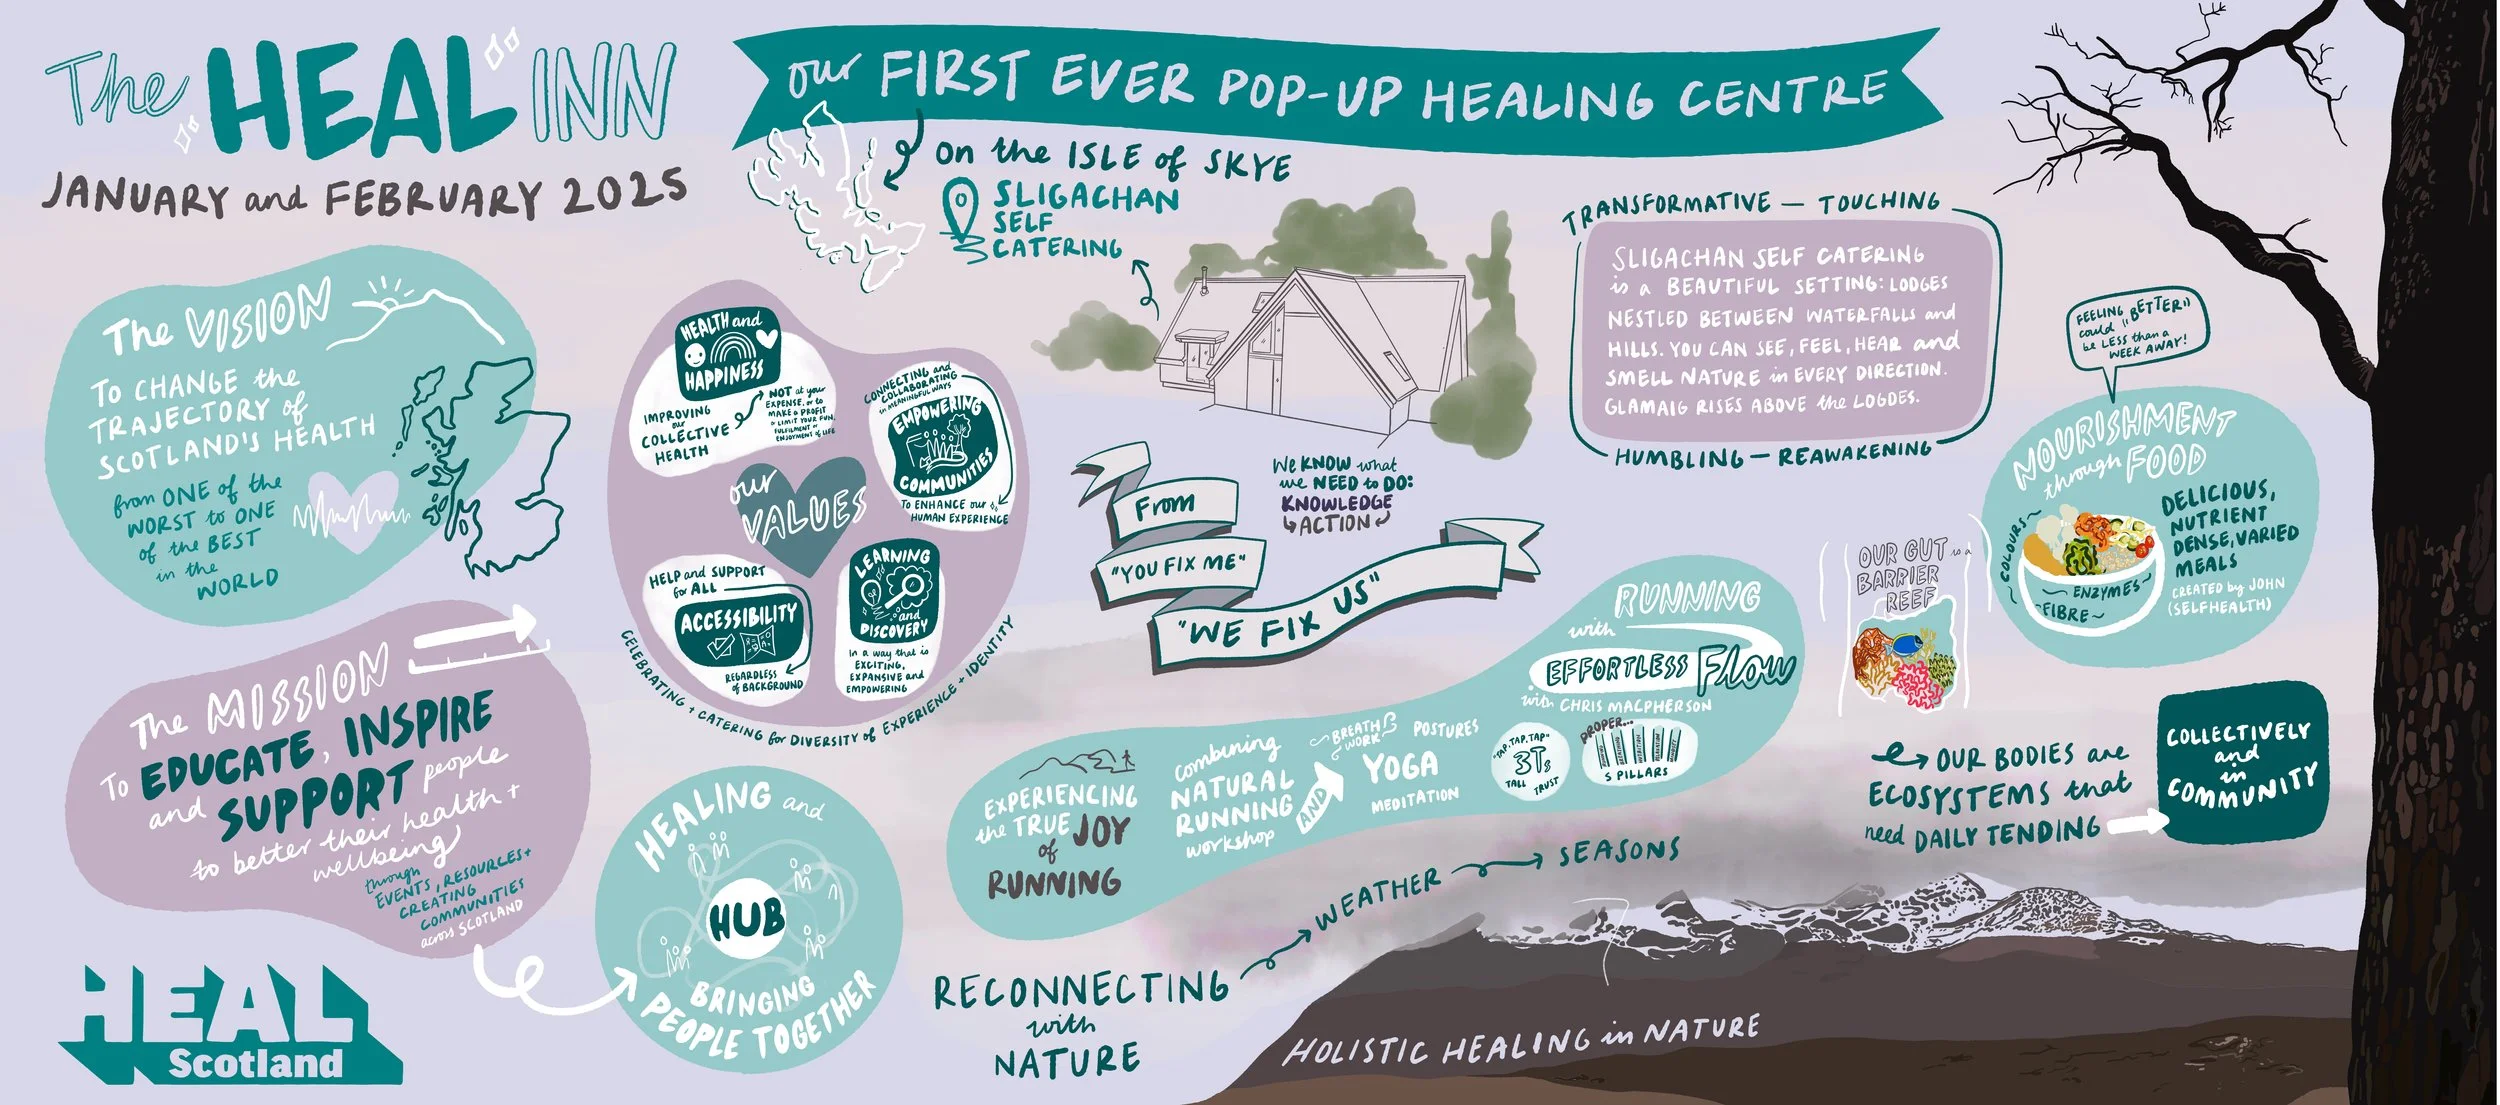 The HEAL INN
JANUARY and FEBRUARY 2025
our FIRST EVER POP-UP HEALING CENTRE
on the ISLE of SKYE
SLIGACHAN
SELF
CATERING
The VISION
TO CHANGE the
TRAJECTORY of
SCOTLAND'S HEALTH
from ONE of the
WORST to ONE
of the BEST
in the
WORLD
The MISSION
To EDUCATE, INSPIRE
and SUPPORT people
to better their health +
wellbeing
through
EVENTS, RESOURCES +
CREATING
COMMUNITIES
across SCOTLAND
HEAL
Scotland
our
VALUES
HEALTH and
HAPPINESS
IMPROVING
our
COLLECTIVE
HEALTH
NOT at your
EXPENSE, or to
MAKE a PROFIT
or LIMIT YOUR FUN,
FULFILMENT or
ENJOYMENT of LIFE
CONNECTING and
COLLABORATING
in MEANINGFUL WAYS
EMPOWERING
COMMUNITIES
TO ENHANCE our
HUMAN EXPERIENCE
HELP and SUPPORT
for ALL
ACCESSIBILITY
REGARDLESS
of BACKGROUND
LEARNING
and
DISCOVERY
in a way that is
EXCITING,
EXPANSIVE and
EMPOWERING
CELEBRATING + CATERING for DIVERSITY of EXPERIENCE + IDENTITY
HEALING and
HUB
BRINGING
PEOPLE TOGETHER
TRANSFORMATIVE — TOUCHING
SLIGACHAN SELF CATERING
is a BEAUTIFUL SETTING: LODGES
NESTLED BETWEEN WATERFALLS and
HILLS. YOU CAN SEE, FEEL, HEAR and
SMELL NATURE in EVERY DIRECTION.
GLAMAIG RISES ABOVE the LOGDES.
HUMBLING — REAWAKENING
We KNOW what
we NEED to DO:
KNOWLEDGE
ACTION
From
"YOU FIX ME"
"WE FIX US"
RUNNING
with
EFFORTLESS Flow
with CHRIS MACPHERSON
EXPERIENCING
the TRUE JOY
of
RUNNING
combining
NATURAL
RUNNING
workshop
AND
BREATH
WORK
POSTURES
YOGA
MEDITATION
"TAP, TAP, TAP"
3Ts
TALL TRUST
PROPER...
5 PILLARS
RECONNECTING
with
NATURE
WEATHER
SEASONS
HOLISTIC HEALING in NATURE
FEELING "BETTER"
could be LESS than a
WEEK AWAY!
NOURISHMENT
through FOOD
DELICIOUS,
NUTRIENT
DENSE, VARIED
MEALS
CREATED by JOHN
(SELFHEALTH)
COLOURS
ENZYMES
FIBRE
OUR GUT is a
BARRIER
REEF
OUR BODIES are
ECOSYSTEMS that
need DAILY TENDING
COLLECTIVELY
and
in
COMMUNITY